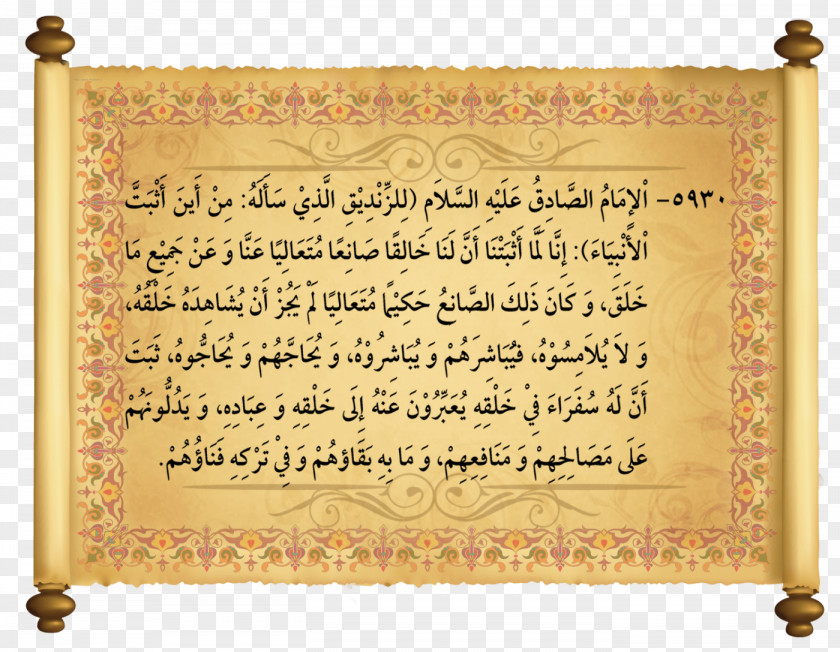 ٥٩٣٠- اْلإمَامُ الصَّادِقُ عَلَيْهِ السَّلاَم (لِلزِّنْدِيْقِ الَّذِيْ سَأَلَهُ: مِنْ أَينَ أَثْبَتَّ
اْلأَنْبِيَاءَ): إِنَّا لَمَّا أَثْبَتْنَا أَنَّ لَنَا خَالِقًا صَانِعًا مُتَعَالِيًا عَنَّا وَ عَنْ جَمِيْعِ مَا
خَلَقَ، وَ كَانَ ذَلِكَ الصَّانِعُ حَكِيْمًا مُتَعَالِيًا لَمْ يَجُزْ أَنْ يُشَاهِدَهُ خَلْقُهُ،
وَ لاَ يُلاَمِسُوْهُ، فَيُبَاشِرَهُمْ وَ يُبَاشِرُوْهُ، وَ يُحَاجَّهُمْ وَ يُحَاجُّوهُ، ثَبَتَ
أَنَّ لَهُ سُفَرَاءَ فِيْ خَلْقِهِ يُعَبِّرُوْنَ عَنْهُ إِلَى خَلْقِهِ وَ عِبَادِهِ، وَ يَدُلُّونَهُمْ
عَلَى مَصَالِحِهِمْ وَ مَنَافِعِهِمْ، وَ مَا بِهِ بَقَاؤُهُمْ وَ فِيْ تَرْكِهِ فَنَاؤُهُمْ.